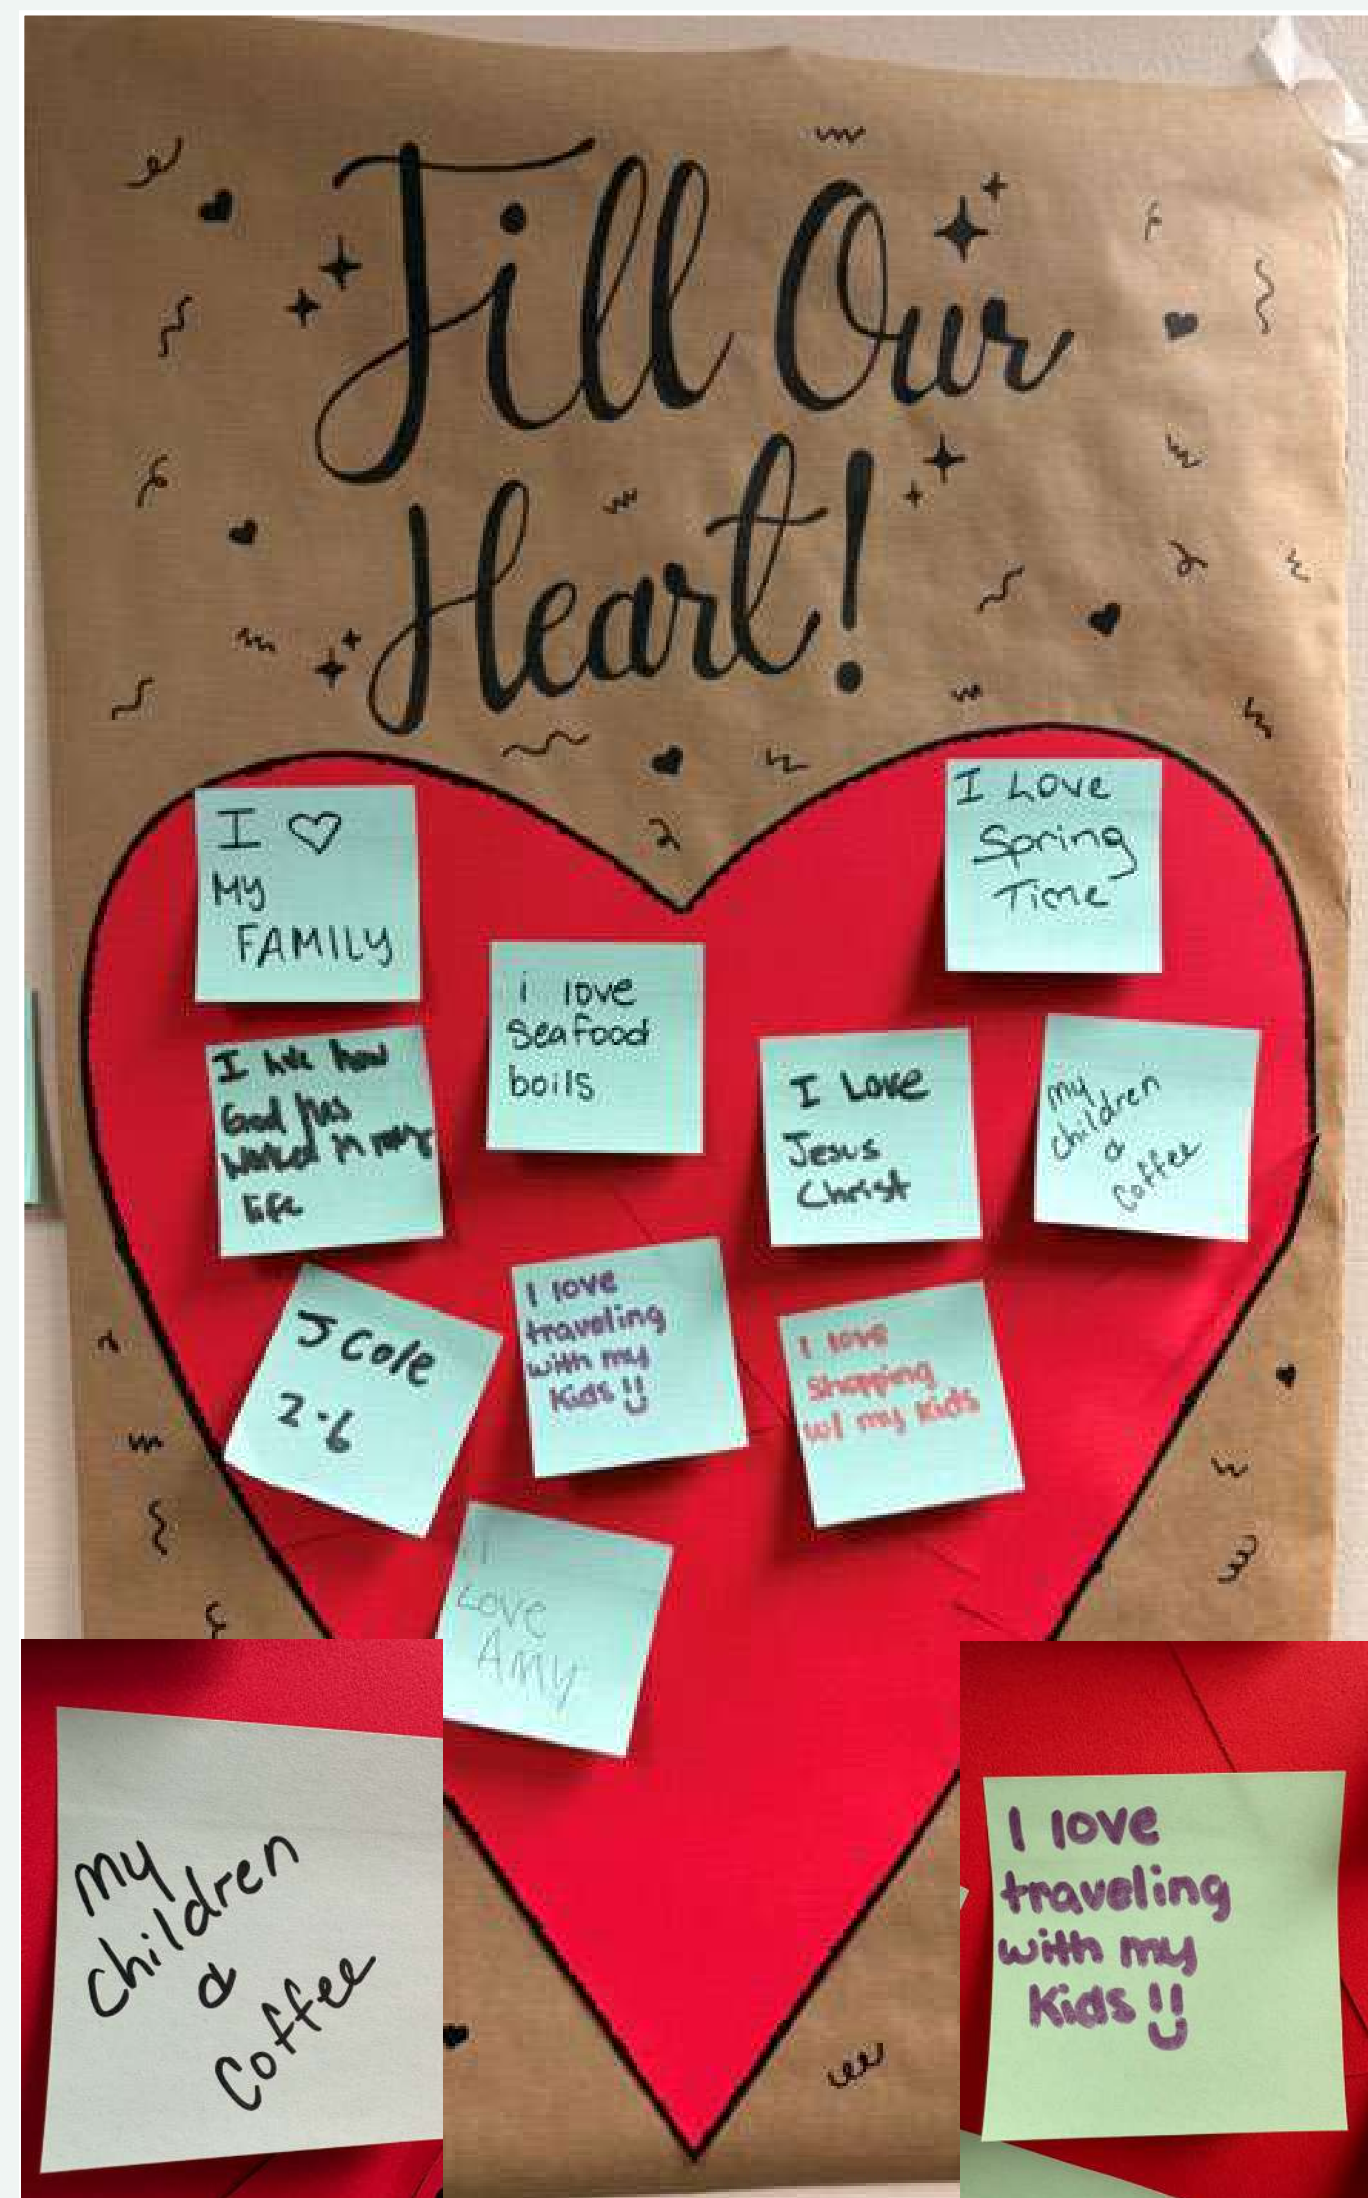 Fill Our
Heart!
I ♡
My
FAMILY
I Love
Spring
Time
i love
Seafood
boils
I love how
God has
worked in my
life
I Love
Jesus
Christ
my
children
&
Coffee
J Cole
2·6
I love
traveling
with my
Kids !!
I love
Shopping
w/ my kids
I
LOVE
AMY
my
children
&
Coffee
I love
traveling
with my
Kids !!